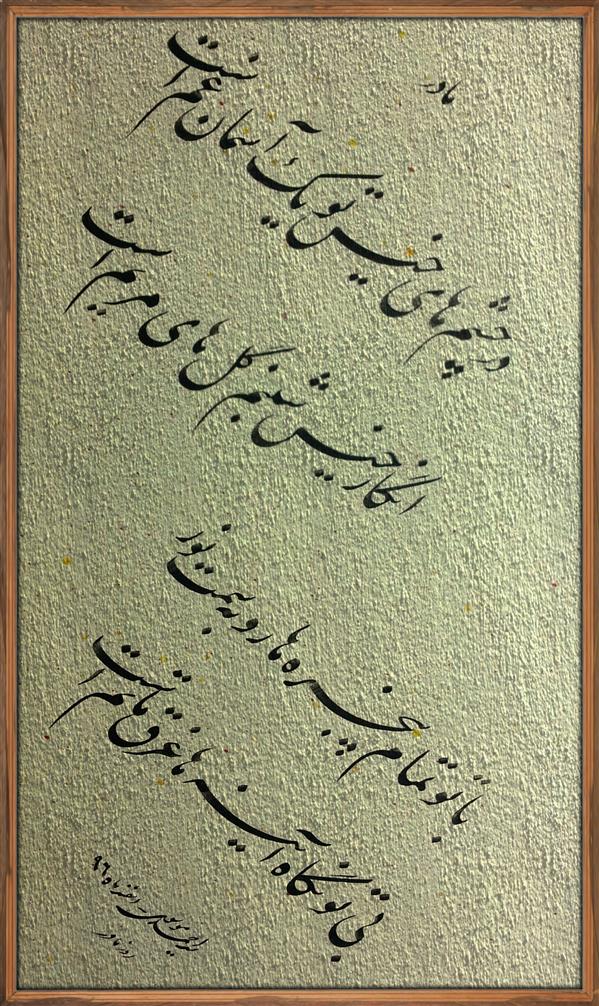 مادر
در چشم های خیس تو یک آسمان غم است
انگار خیس شبنم گل های مریم است
با تو تمام پنجره ها رو به سمت نور
بی تو نگاه آینه ها غرق ماتم است
اسفند ماه ۹۶
روز مادر